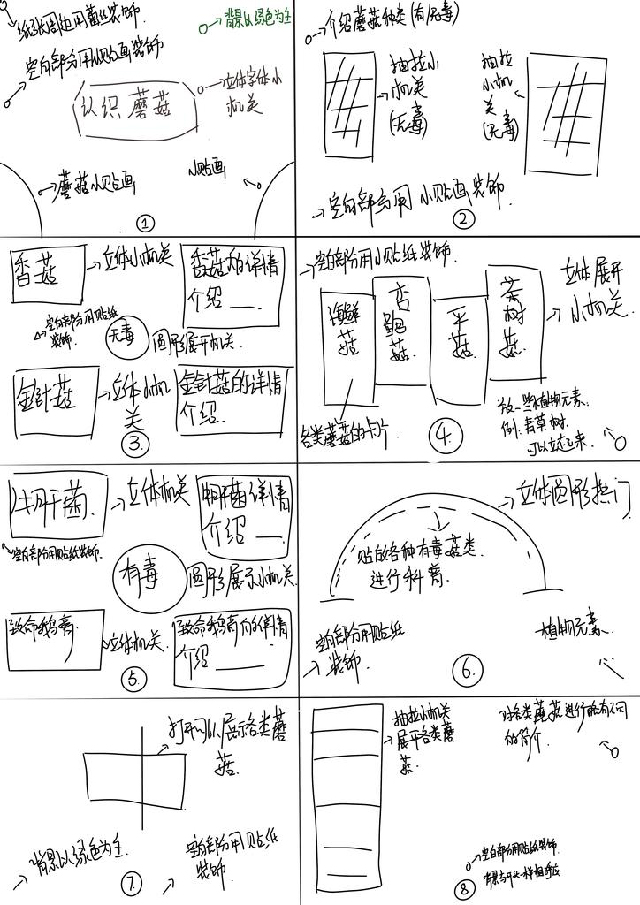 背景以绿色为主
空白部分用小贴画装饰
认识蘑菇
立体字体小
机关
蘑菇小贴画
小贴画
①
介绍蘑菇种类(有/无毒)
抽拉小
机关
(无毒)
抽拉
小机
关
(无毒)
空白部分用小贴画装饰.
②
香菇
立体小机关
香菇的详情
介绍
空白部分用贴纸
装饰.
无毒
圆形展开机关.
金针菇
立体小机
关
金针菇的详情
介绍.
③
空白部分用小贴纸装饰.
海鲜
菇
杏
鲍
菇
平
菇
茶
树
菇
立体展开
小机关.
各类蘑菇的
做一些植物元素.
例:青草树.
可以立起来.
④
牛肝菌
立体机关
牛肝菌详情
介绍
空白部分用贴纸装饰.
有毒
圆形展示小机关.
致命鹅膏
立体机关.
致命鹅膏的详情
介绍
⑤
立体圆形拱门
贴放各种有毒菇类
进行科普.
空白部分用贴纸
装饰.
植物元素.
⑥
打开可以展示各类蘑
菇.
背景以绿色为主.
空白部分用贴纸
装饰
⑦
抽拉小机关
展开各类蘑
菇.
对各类蘑菇进行
的简介.
空白部分用贴纸装饰.
⑧